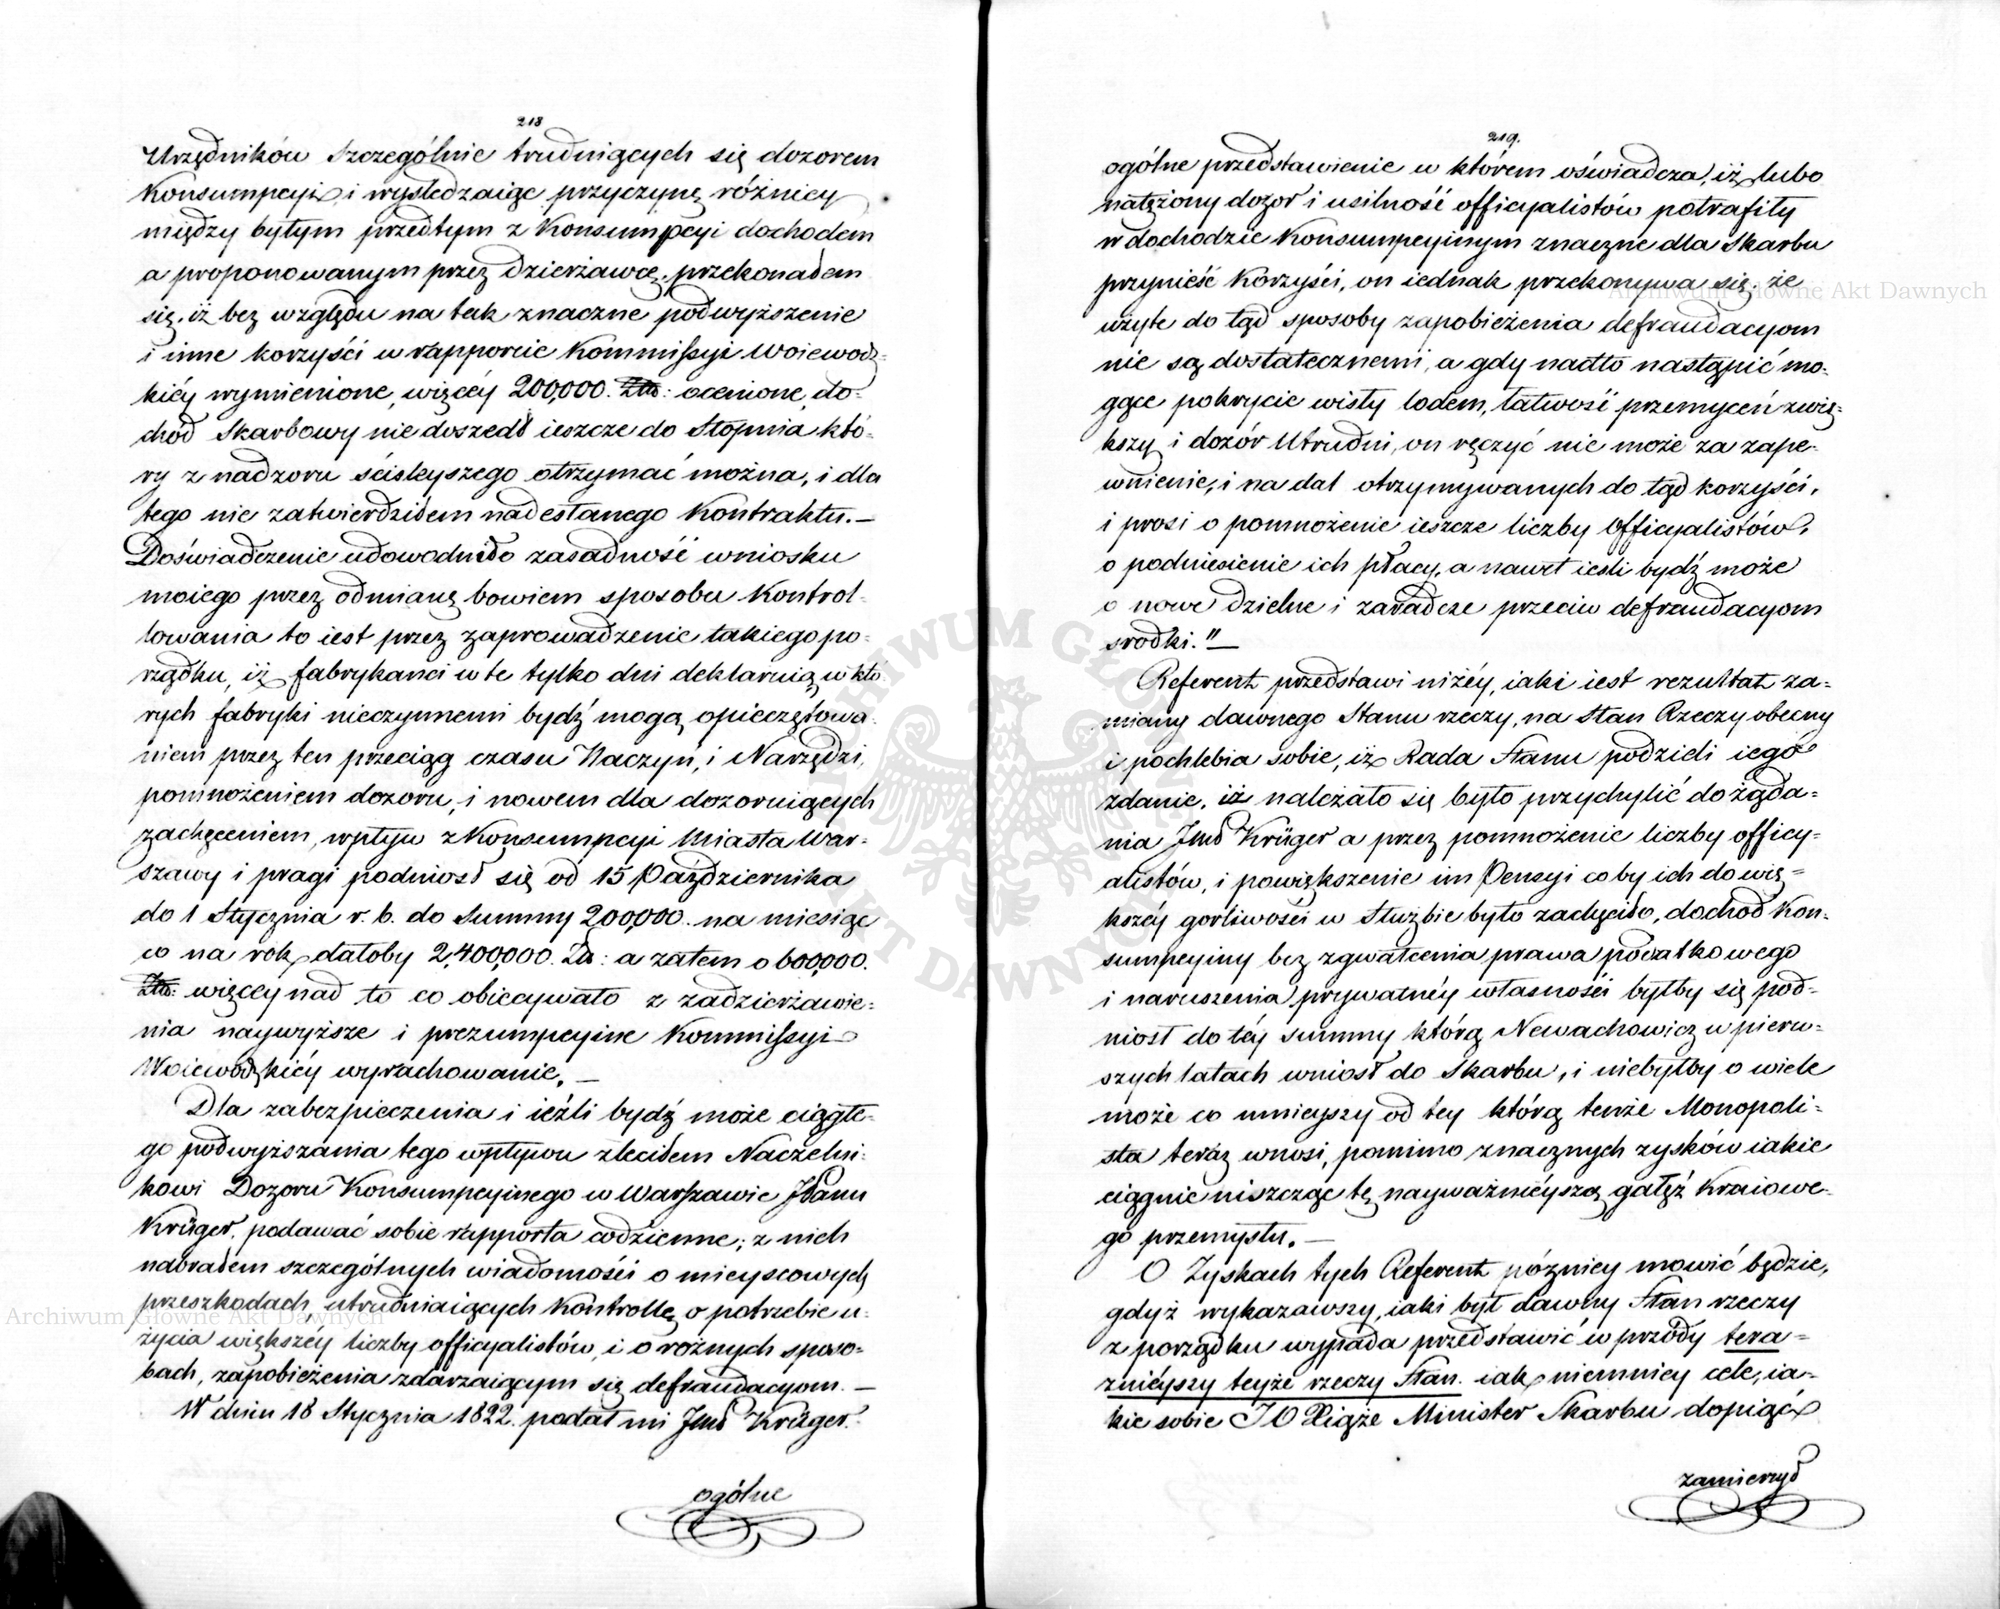 218
Urzędników szczególnie trudniących się dozorem
Konsumpcyi, i wysledzaiąc przyczynę różnicy
między byłym przedtym z Konsumpcyi dochodem
a proponowanym przez dzierżawcę, przekonałem
się, iż bez względu na tak znaczne podwyższenie
i inne korzyści w rapporcie Kommissyi Woiewodz-
kiéy wymienione, więcéy 200,000. Złł: ocenione, do-
chód Skarbowy nie doszedł ieszcze do Stopnia któ-
ry z nadzoru ścisleyszego otrzymać można, i dla
tego nie zatwierdziłem nadesłanego Kontraktu. —
Doświadczenie udowodniło zasadność wniosku
moiego przez odmianę bowiem sposobu Kontrol-
lowania to iest przez zaprowadzenie takiego po-
rządku, iż fabrykanci w te tylko dni deklaruią w któ-
rych fabryki nieczynnemi bydź mogą, opieczętowa-
niem przez ten przeciąg czasu Naczyń, i Narzędzi,
pomnożeniem dozoru, i nowem dla dozoruiących
zachęceniem, wpływ z Konsumpcyi Miasta War-
szawy i pragi podniosł się od 15 Października
do 1 Stycznia r. b. do Summy 200,000. na miesiąc
co na rok, dałoby 2,400,000. Zł: a zatem o 600,000.
Złł: więcey nad to co obiecywało z zadzierżawie-
nia naywyższe i prezumpcyine Kommissyi
Woiewodzkiéy wyrachowanie. —
Dla zabezpieczenia i ieźli bydź może ciągłe-
go podwyższania tego wpływu zleciłem Naczelni-
kowi Dozoru Konsumpcyinego w Warszawie JPanu
Krüger, podawać sobie rapporta codzienne; z nich
nabrałem szczególnych wiadomości o mieyscowych
przeszkodach, utrudniaiących Kontrollę, o potrzebie u-
życia większéy liczby officyalistów, i o rożnych sposo-
bach, zapobieżenia zdarzaiącym się defraudacyom. —
W dniu 18 Stycznia 1822. podał mi Jmd Krüger.
ogólne
219.
ogólne przedstawienie w którem oświadcza, iż lubo
natężony dozor i usilność officyalistów potrafiły
w dochodzie Konsumpcyinym znaczne dla Skarbu
przynieść Korzyści, on iednak przekonywa się, że
użyte do tąd sposoby zapobieżenia defraudacyom
nie są dostatecznemi, a gdy nadto nastąpić mo-
gące pokrycie wisły lodem, łatwość przemyceń zwię-
kszy, i dozór Utrudni, on ręczyć nie może za zape-
wnienie, i na dal otrzymywanych do tąd korzyści,
i prosi o pomnożenie ieszcze liczby Officyalistów,
o podniesienie ich płacy, a nawet iesli bydź może
o nowe dzielne i zaradcze przeciw defraudacyom
srodki." —
Referent przedstawi niżéy, iaki iest rezultat za-
miany dawnego Stanu rzeczy, na Stan Rzeczy obecny
i pochlebia sobie, iż Rada Stanu podzieli iego
zdanie, iż należało się było przychylić do żąda-
nia Jmd Krüger a przez pomnożenie liczby officy-
alistów, i powiększenie im Pensyi coby ich do wię-
kszéy gorliwości w Służbie było zachęciło, dochod Kon-
sumpcyiny bez zgwałcenia prawa początkowego
i naruszenia prywatnéy własności byłby się pod-
niosł do téy summy którą Newachowicz w pierw-
szych latach wniosł do Skarbu, i niebyłby o wiele
może co mnieyszy od tey którą tenże Monopoli-
sta teraz wnosi, pomimo znacznych zysków iakie
ciągnie niszcząc tę nayważnieyszą gałęź Kraiowe-
go przemysłu. —
O Zyskach tych Referent pózniey mowić będzie,
gdyż wykazawszy, iaki był dawny Stan rzeczy
z porządku wypada przedstawić w przódy tera-
znieyszy teyże rzeczy Stan. iak niemniey cele, ia-
kie sobie J O Xiąże Minister Skarbu dopiąć
zamierzył
Archiwum Główne Akt Dawnych
Archiwum Główne Akt Dawnych
ARCHIWUM GŁÓWNE AKT DAWNYCH